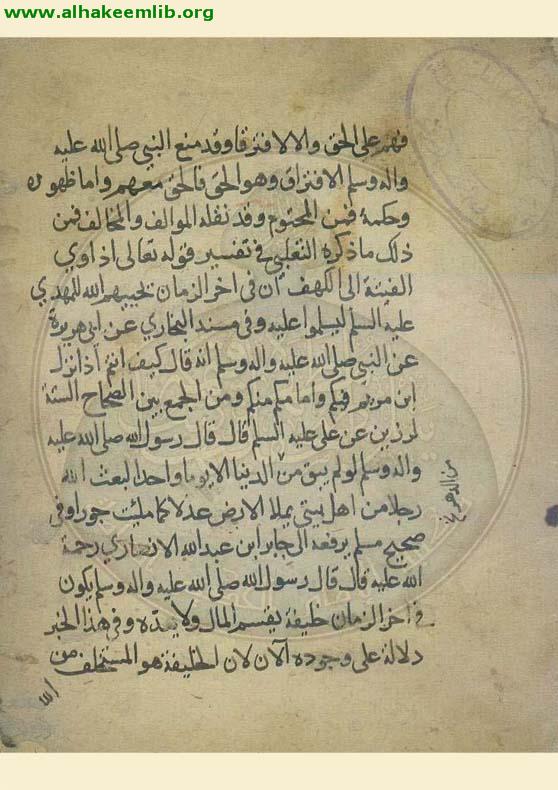 www.alhakeemlib.org
فهم على الحق والا لافترقا وقد منع النبي صلى الله عليه
واله وسلم الافتراق وهو الحق فالحق معهم واما ظهوره
وحكمه فمن المحتوم وقد نقله الموالف والمخالف فمن
ذلك ما ذكره الثعلبي في تفسير قوله تعالى اذ اوي
الفتية الى الكهف ان في اخر الزمان يحييهم الله للمهدي
عليه السلم ليسلموا عليه وفي مسند البخاري عن ابي هريرة
عن النبي صلى الله عليه واله وسلم انه قال كيف انتم اذا نزل
ابن مريم فيكم وامامكم منكم ومن الجمع بين الصحاح الستة
لرزين عن علي عليه السلم قال قال رسول الله صلى الله عليه
واله وسلم لو لم يبق من الدنيا الا يوما واحدا لبعث الله
من الدهر
رجلا من اهل بيتي يملا الارض عدلا كما ملئت جورا وفي
صحيح مسلم يرفعه الى جابر ابن عبد الله الانصاري رحمة
الله عليه قال قال رسول الله صلى الله عليه واله وسلم يكون
في اخر الزمان خليفة يقسم المال ولا يعده وفي هذا الخبر
دلالة على وجوده الآن لان الخليفة هو المستخلف من